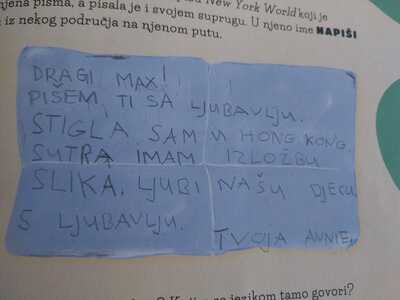 njena pisma, a pisala je i svojem suprugu. U njeno ime NAPIŠI
New York World koji je
iz nekog područja na njenom putu.
DRAGI MAX!
PIŠEM TI SA LJUBAVLJU.
STIGLA SAM U HONG KONG.
SUTRA IMAM IZLOŽBU
SLIKA. LJUBI NAŠU DJECU.
S LJUBAVLJU.
TVOJA ANNIE.
jezikom tamo govori?